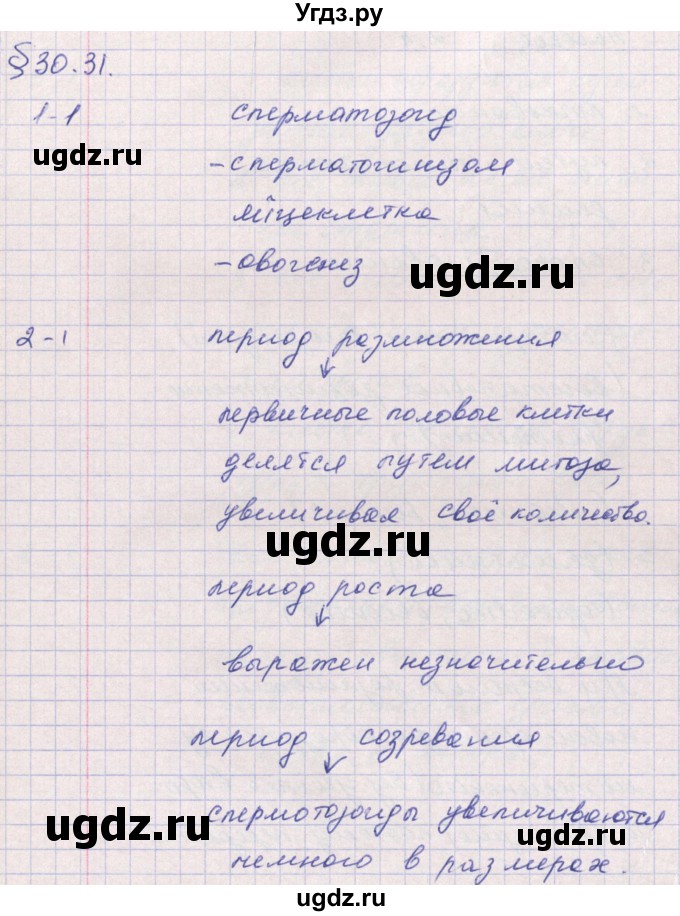 Угдз.ру
§30.31.
1-1 сперматозоид
-сперматогинизом
яйцеклетка
-овогенез
2-1 период размножения
первичные половые клетки
делятся путем митоза,
увеличивая своё количество.
период роста
выражен незначительно
период созревания
спермотозоиды увеличиваются
немного в размерах.
ugdz.ru
ugdz.ru
ugdz.ru
ugdz.ru
ugdz.ru
ugdz.ru
ugdz.ru